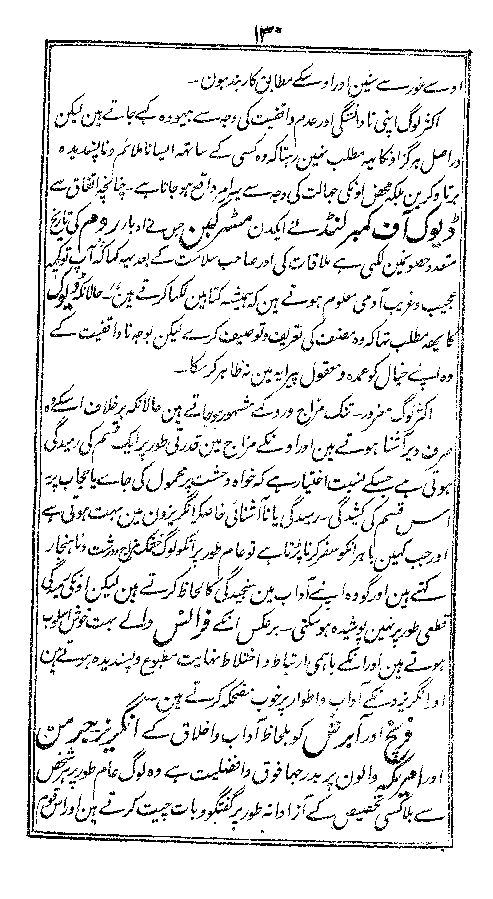 ۱۳۰
اوسے غور سے سنین اور اوسکے مطابق کاربند ہون ۔
اکثر لوگ اپنی نادانستگی اور عدم واقفیت کی وجہ سے بیہودہ کہے جاتے ہین لیکن
دراصل ہرگز اونکا یہ مطلب نہین رہتا کہ وہ کسی کے ساتھہ ایسا ناملائم و ناپسندیدہ
برتاو کرین بلکہ محض اونکی جہالت کی وجہ سے یہ امر واقع ہو جاتا ہے ۔ چنانچہ اتفاق سے
ڈیوک آف کمبرلنڈ نے ایکدن مسٹر گبن جس نے ادبار روم کی تاریخ
متعدد حصونمین لکھی ہے ملاقات کی اور صاحب سلامت کے بعد یہ کہا کہ آپ تو کچھہ
عجیب و غریب آدمی معلوم ہوتے ہین کہ ہمیشہ کتابین لکھا کرتے ہین ۔ حالانکہ ڈیوک
کا یہہ مطلب تہا کہ وہ مصنف کی تعریف و توصیف کرے لیکن بوجہ ناواقفیت کے
وہ اپنے خیال کو عمدہ و معقول پیرایہ مین نہ ظاہر کر سکا ۔
اکثر لوگ مغرور ۔ تنک مزاج وردکے مشہور ہو جاتے ہین حالانکہ برخلاف اسکے وہ
صرف دیر آشنا ہوتے ہین اور اونکے مزاج مین قدرتی طور پر ایک قسم کی رمیدگی
ہوتی ہے جسکے نسبت اختیار ہے کہ خواہ وحشت پر محمول کی جاے یا حجاب پر
اس قسم کی کشیدگی ۔ رمیدگی یا ناآشنائی خاصکر انگریزون مین بہت ہوتی ہے
اور جب کہین باہر انکو سفر کرنا پڑتا ہے تو عام طور پر انکو لوگ خشک مزاج و درشت و ناہنجار
کہتے ہین اور گو وہ اپنے آداب مین سنجیدگی کا لحاظ کرتے ہین لیکن اونکی رمیدگی
قطعی طور پر نہین پوشیدہ ہو سکتی ۔ برعکس انکے فرانس والے بہت خوش اسلوب
ہوتے ہین اور انکے باہمی ارتباط و اختلاط نہایت مطبوع و پسندیدہ ہوتے ہین
اور انگریزونکے آداب و اطوار پر خوب مضحکہ کرتے ہین ۔
فرنچ اور آیرش کو بلحاظ آداب و اخلاق کے انگریز جرمن
اور امریکہ والون پر بدرجہا فوق و افضلیت ہے وہ لوگ عام طور پر ہر شخص
سے بلا کسی تخصیص کے آزادانہ طور پر گفتگو و بات چیت کرتے ہین اور اس قوم